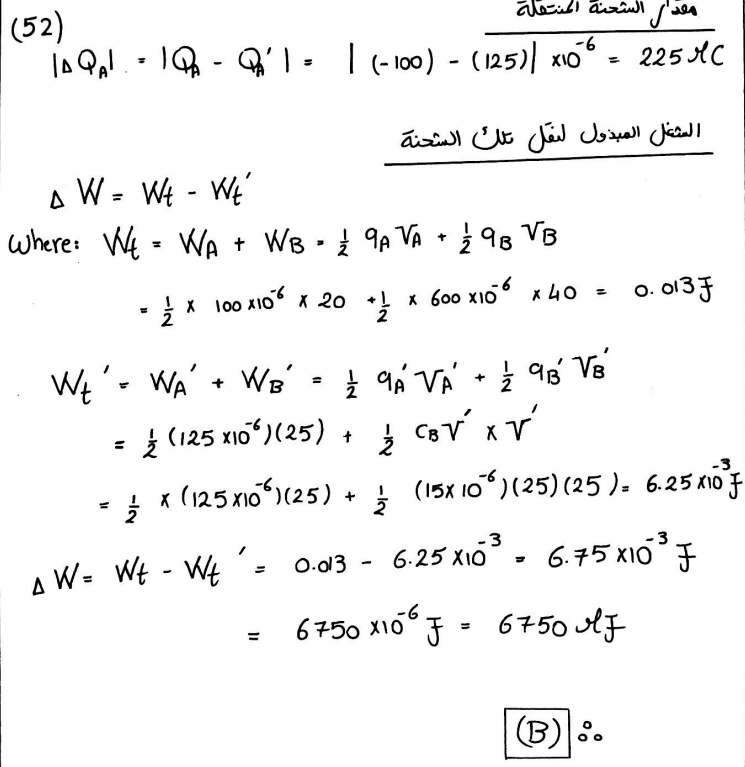 (52)
مقدار الشحنة المنتقلة
|ΔQ_A| = |Q_A - Q_A'| = |(-100) - (125)| ×10⁻⁶ = 225 μC
الشغل المبذول لنقل تلك الشحنة
Δ W = Wt - Wt'
Where: Wt = W_A + W_B = ½ q_A V_A + ½ q_B V_B
= ½ × 100 ×10⁻⁶ × 20 + ½ × 600 ×10⁻⁶ × 40 = 0.013 J
Wt' = W_A' + W_B' = ½ q_A' V_A' + ½ q_B' V_B'
= ½ (125 ×10⁻⁶)(25) + ½ C_B V' × V'
= ½ × (125 ×10⁻⁶)(25) + ½ (15× 10⁻⁶)(25)(25) = 6.25 ×10⁻³ J
Δ W = Wt - Wt' = 0.013 - 6.25 ×10⁻³ = 6.75 ×10⁻³ J
= 6750 ×10⁻⁶ J = 6750 μJ
(B) ∴